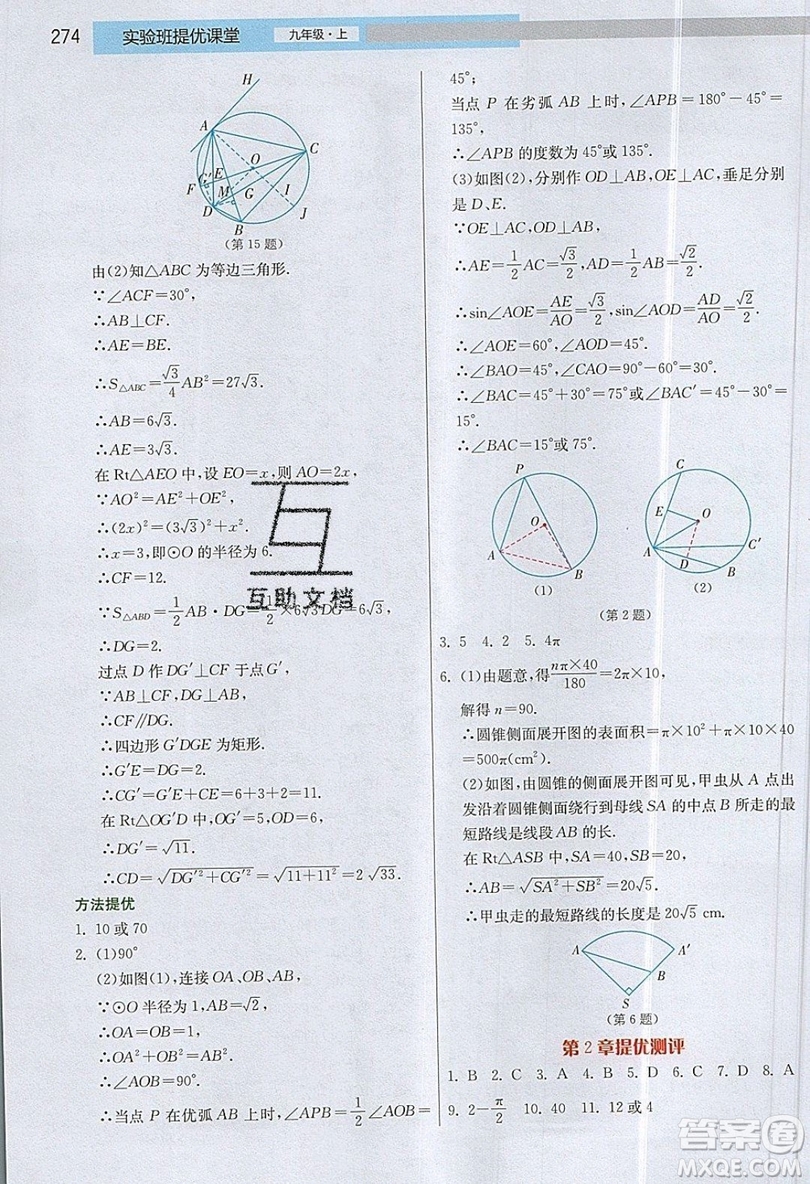 274 实验班提优课堂 九年级·上
H
A
C
O
F G′ E
M G I
D
B J
(第 15 题)
由(2)知△ABC 为等边三角形.
∵∠ACF=30°,
∴AB⊥CF.
∴AE=BE.
∴S△ABC=√3/4 AB²=27√3.
∴AB=6√3.
∴AE=3√3.
在 Rt△AEO 中,设 EO=x,则 AO=2x,
∵AO²=AE²+OE²,
∴(2x)²=(3√3)²+x².
∴x=3,即⊙O 的半径为 6.
∴CF=12.
∵S△ABD=1/2 AB·DG=1/2×6√3 DG=6√3.
∴DG=2.
过点 D 作 DG′⊥CF 于点 G′,
∵AB⊥CF, DG⊥AB,
∴CF∥DG.
∴四边形 G′DGE 为矩形.
∴G′E=DG=2.
∴CG′=G′E+CE=6+3+2=11.
在 Rt△OG′D 中,OG′=5,OD=6,
∴DG′=√11.
∴CD=√(DG′²+CG′²)=√(11+11²)=2√33.
方法提优
1. 10 或 70
2. (1)90°
(2)如图(1),连接 OA、OB、AB,
∵⊙O 半径为 1,AB=√2,
∴OA=OB=1.
∴OA²+OB²=AB².
∴∠AOB=90°.
∴当点 P 在优弧 AB 上时,∠APB=1/2∠AOB=
45°;
当点 P 在劣弧 AB 上时,∠APB=180°-45°=
135°,
∴∠APB 的度数为 45°或 135°.
(3)如图(2),分别作 OD⊥AB,OE⊥AC,垂足分别
是 D、E.
∵OE⊥AC,OD⊥AB,
∴AE=1/2 AC=√3/2, AD=1/2 AB=√2/2.
∴sin∠AOE=AE/AO=√3/2,sin∠AOD=AD/AO=√2/2.
∴∠AOE=60°,∠AOD=45°.
∴∠BAO=45°,∠CAO=90°-60°=30°.
∴∠BAC=45°+30°=75°或∠BAC′=45°-30°=15°.
∴∠BAC=15°或 75°.
P
O
A B
(1)
C
E O
A C′
D B
(2)
(第 2 题)
3. 5 4. 2 5. 4π
6. (1)由题意,得nπ×40/180=2π×10,
解得 n=90.
∴圆锥侧面展开图的表面积=π×10²+π×10×40
=500π(cm²).
(2)如图,由圆锥的侧面展开图可见,甲虫从 A 点出
发沿着圆锥侧面绕行到母线 SA 的中点 B 所走的最
短路线是线段 AB 的长.
在 Rt△ASB 中,SA=40,SB=20,
∴AB=√(SA²+SB²)=20√5.
∴甲虫走的最短路线的长度是 20√5 cm.
A A′
B
S
(第 6 题)
第 2 章提优测评
1. B 2. C 3. A 4. B 5. D 6. C 7. D 8. A
9. 2-π/2 10. 40 11. 12 或 4
互助文档
答案圈
MXQE.COM